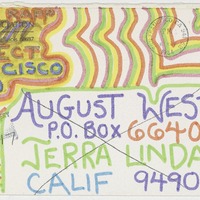 CISCO
AUGUST WEST
P.O. BOX 6640
TERRA LINDA
CALIF 9490